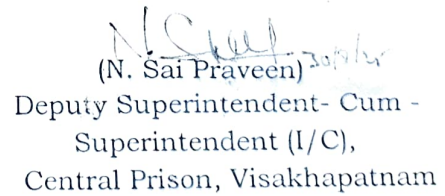 (N. Sai Praveen)
Deputy Superintendent- Cum -
Superintendent (I/C),
Central Prison, Visakhapatnam